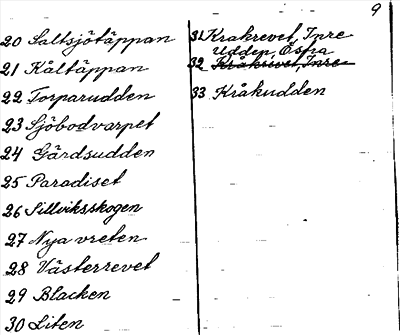 9
20 Saltsjötäppan
21 Kåltäppan
22 Torparudden
23 Sjöbodvarpet
24 Gärdsudden
25 Paradiset
26 Sillviksskogen
27 Nya vreten
28 Västerrevet
29 Blacken
30 Liten
31 Krakrevet, Inre
Udden, Östra
32 Kråkrivet, Inre
33 Kråkudden